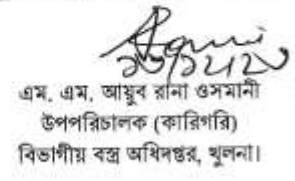 এম. এম. আয়ুব রানা ওসমানী
উপপরিচালক (কারিগরি)
বিভাগীয় বস্ত্র অধিদপ্তর, খুলনা।